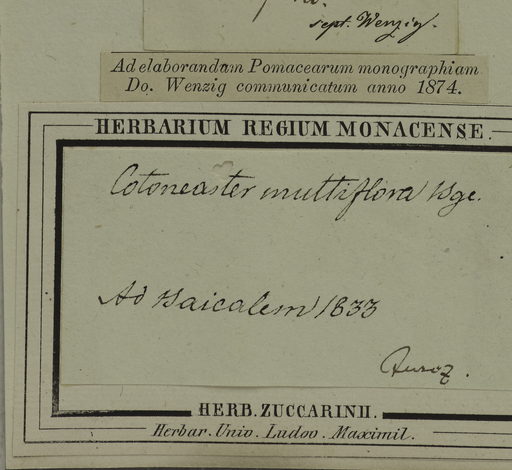 sept. Wenzig.
Ad elaborandam Pomacearum monographiam
Do. Wenzig communicatum anno 1874.
HERBARIUM REGIUM MONACENSE.
Cotoneaster multiflora Bge.
Ad Baicalem 1833
Turcz.
HERB. ZUCCARINII.
Herbar. Univ. Ludov. Maximil.